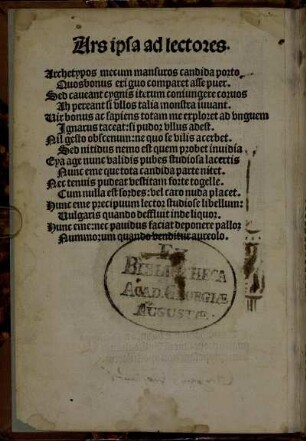 Ars ipsa ad lectores.
Archetypos mecum mansuros candida porto
Quos bonus exiguo comparet asse puer.
Sed caueant cygnis iterum coniungere coruos
Ah pereant si vllos talia monstra iuuant.
Vir bonus ac sapiens totam me exploret ad vnguem
Ignarus taceat: si pudor vllus adest.
Nil gesto obscenum: ne quo se bilis acerbet.
Sed nitidus nemo est quem probet inuidia
Eya age nunc validis pubes studiosa lacertis
Nunc eme que tota candida parte nitet.
Nec tenuis pudeat vestitam forte togelle.
Cum nulla est sordes: vel caro nuda placet.
Hunc eme precipuum lector studiose libellum:
Vulgaris quando deffluit inde liquor.
Hunc eme: nec pauidus faciat deponere pallor
Numorum quando venditur aureolo.
EX
BIBLIOTHECA
ACAD. GEORGIÆ
AUGUSTÆ.